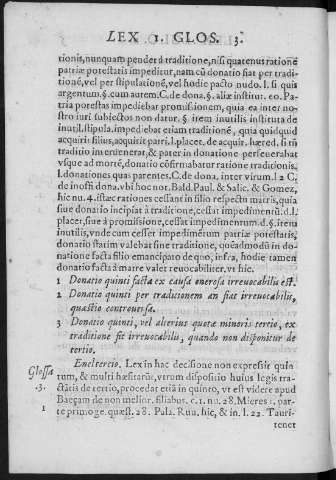 LEX I. GLOS. 3.
tionis, nunquam pendet à traditione, nisi quatenus ratione
patriæ potestatis impeditur, nam cũ donatio fiat per traditi
tionē, vel per stipulationē, vel hodie pacto nudo. l. si quis
argentum. §. cum autem. C. de dona. §. aliæ institut. eo. Pa-
tria potestas impediebat promissionem, quia ea inter no-
stro iuri subiectos non datur. §. item inutilis instituta de
inutil. stipula. impediebat etiam traditionē, quia quidquid
acquirit filius, acquirit patri. l. placet. de acquir. hæred. si tñ
traditio interuenerat, & pater in donatione perseuerabat
vsque ad mortē, donatio cōfirmabatur ratione traditionis.
l. donationes quas parentes. C. de dona. inter virum. l. 2 C.
de inoffi dona. vbi hoc not. Bald. Paul. & Salic. & Gomez,
hic nu. 4. istæc rationes cessant in filio respectu matris, quia
siue donatio incipiat à traditione, cessat impedimentũ. d. l.
placet, siue à promissione, cessat impedimentum. d. §. item
inutilis, vnde cum cesset impedimētum patriæ potestatis,
donatio statim valebat sine traditione, quēadmodũ in do-
natione facta filio emancipato de quo, infra, hodie tamen
donatio facta à matre valet reuocabiliter, vt hic.
1 Donatio quinti facta ex causa onerosa irreuocabilis est.
2 Donatio quinti per traditionem an fiat irreuocabilis,
quæstio controuersa.
3 Donatio quinti, vel alterius quotæ minoris tertio, ex
traditione fit irreuocabilis, quando non disponitur de
tertio.
Glossa
.3.
1
En el tercio. Lex in hac decisione non expressit quin
tum, & multi hæsitarũt, vtrum dispositio huius legis tra-
ctātis de tertio, procedat etiã in quinto, vt est videre apud
Baeçam de non melior. filiabus. c. 1. nu. 28. Mieres 1. par-
te primoge. quæst. 28. Pala. Ruu. hic, & in l. 22. Tauri-
tenet